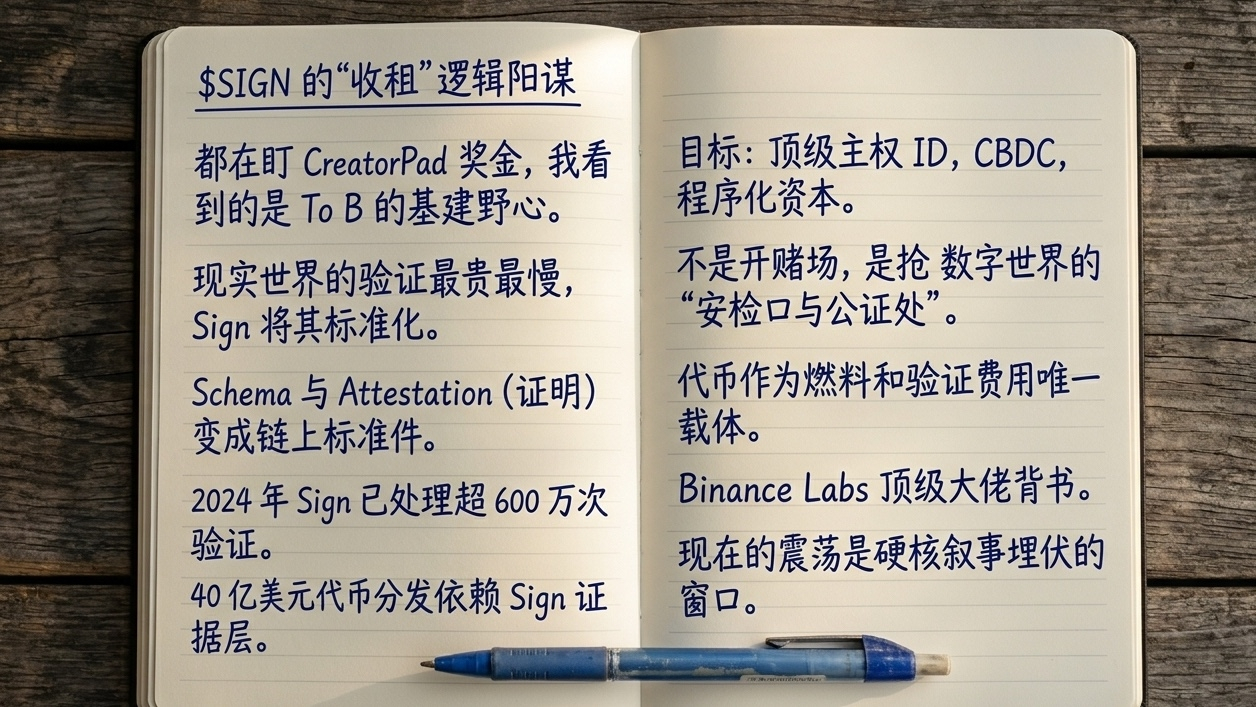 $SIGN 的“收租”逻辑阳谋
都在盯 CreatorPad 奖金，我看
到的是 To B 的基建野心。
现实世界的验证最贵最慢，
Sign 将其标准化。
Schema 与 Attestation (证明)
变成链上标准件。
2024 年 Sign 已处理超 600 万次
验证。
40 亿美元代币分发依赖 Sign 证
据层。
目标：顶级主权 ID, CBDC,
程序化资本。
不是开赌场, 是抢 数字世界的
“安检口与公证处”。
代币作为燃料和验证费用唯一
载体。
Binance Labs 顶级大佬背书。
现在的震荡是硬核叙事埋伏的
窗口。